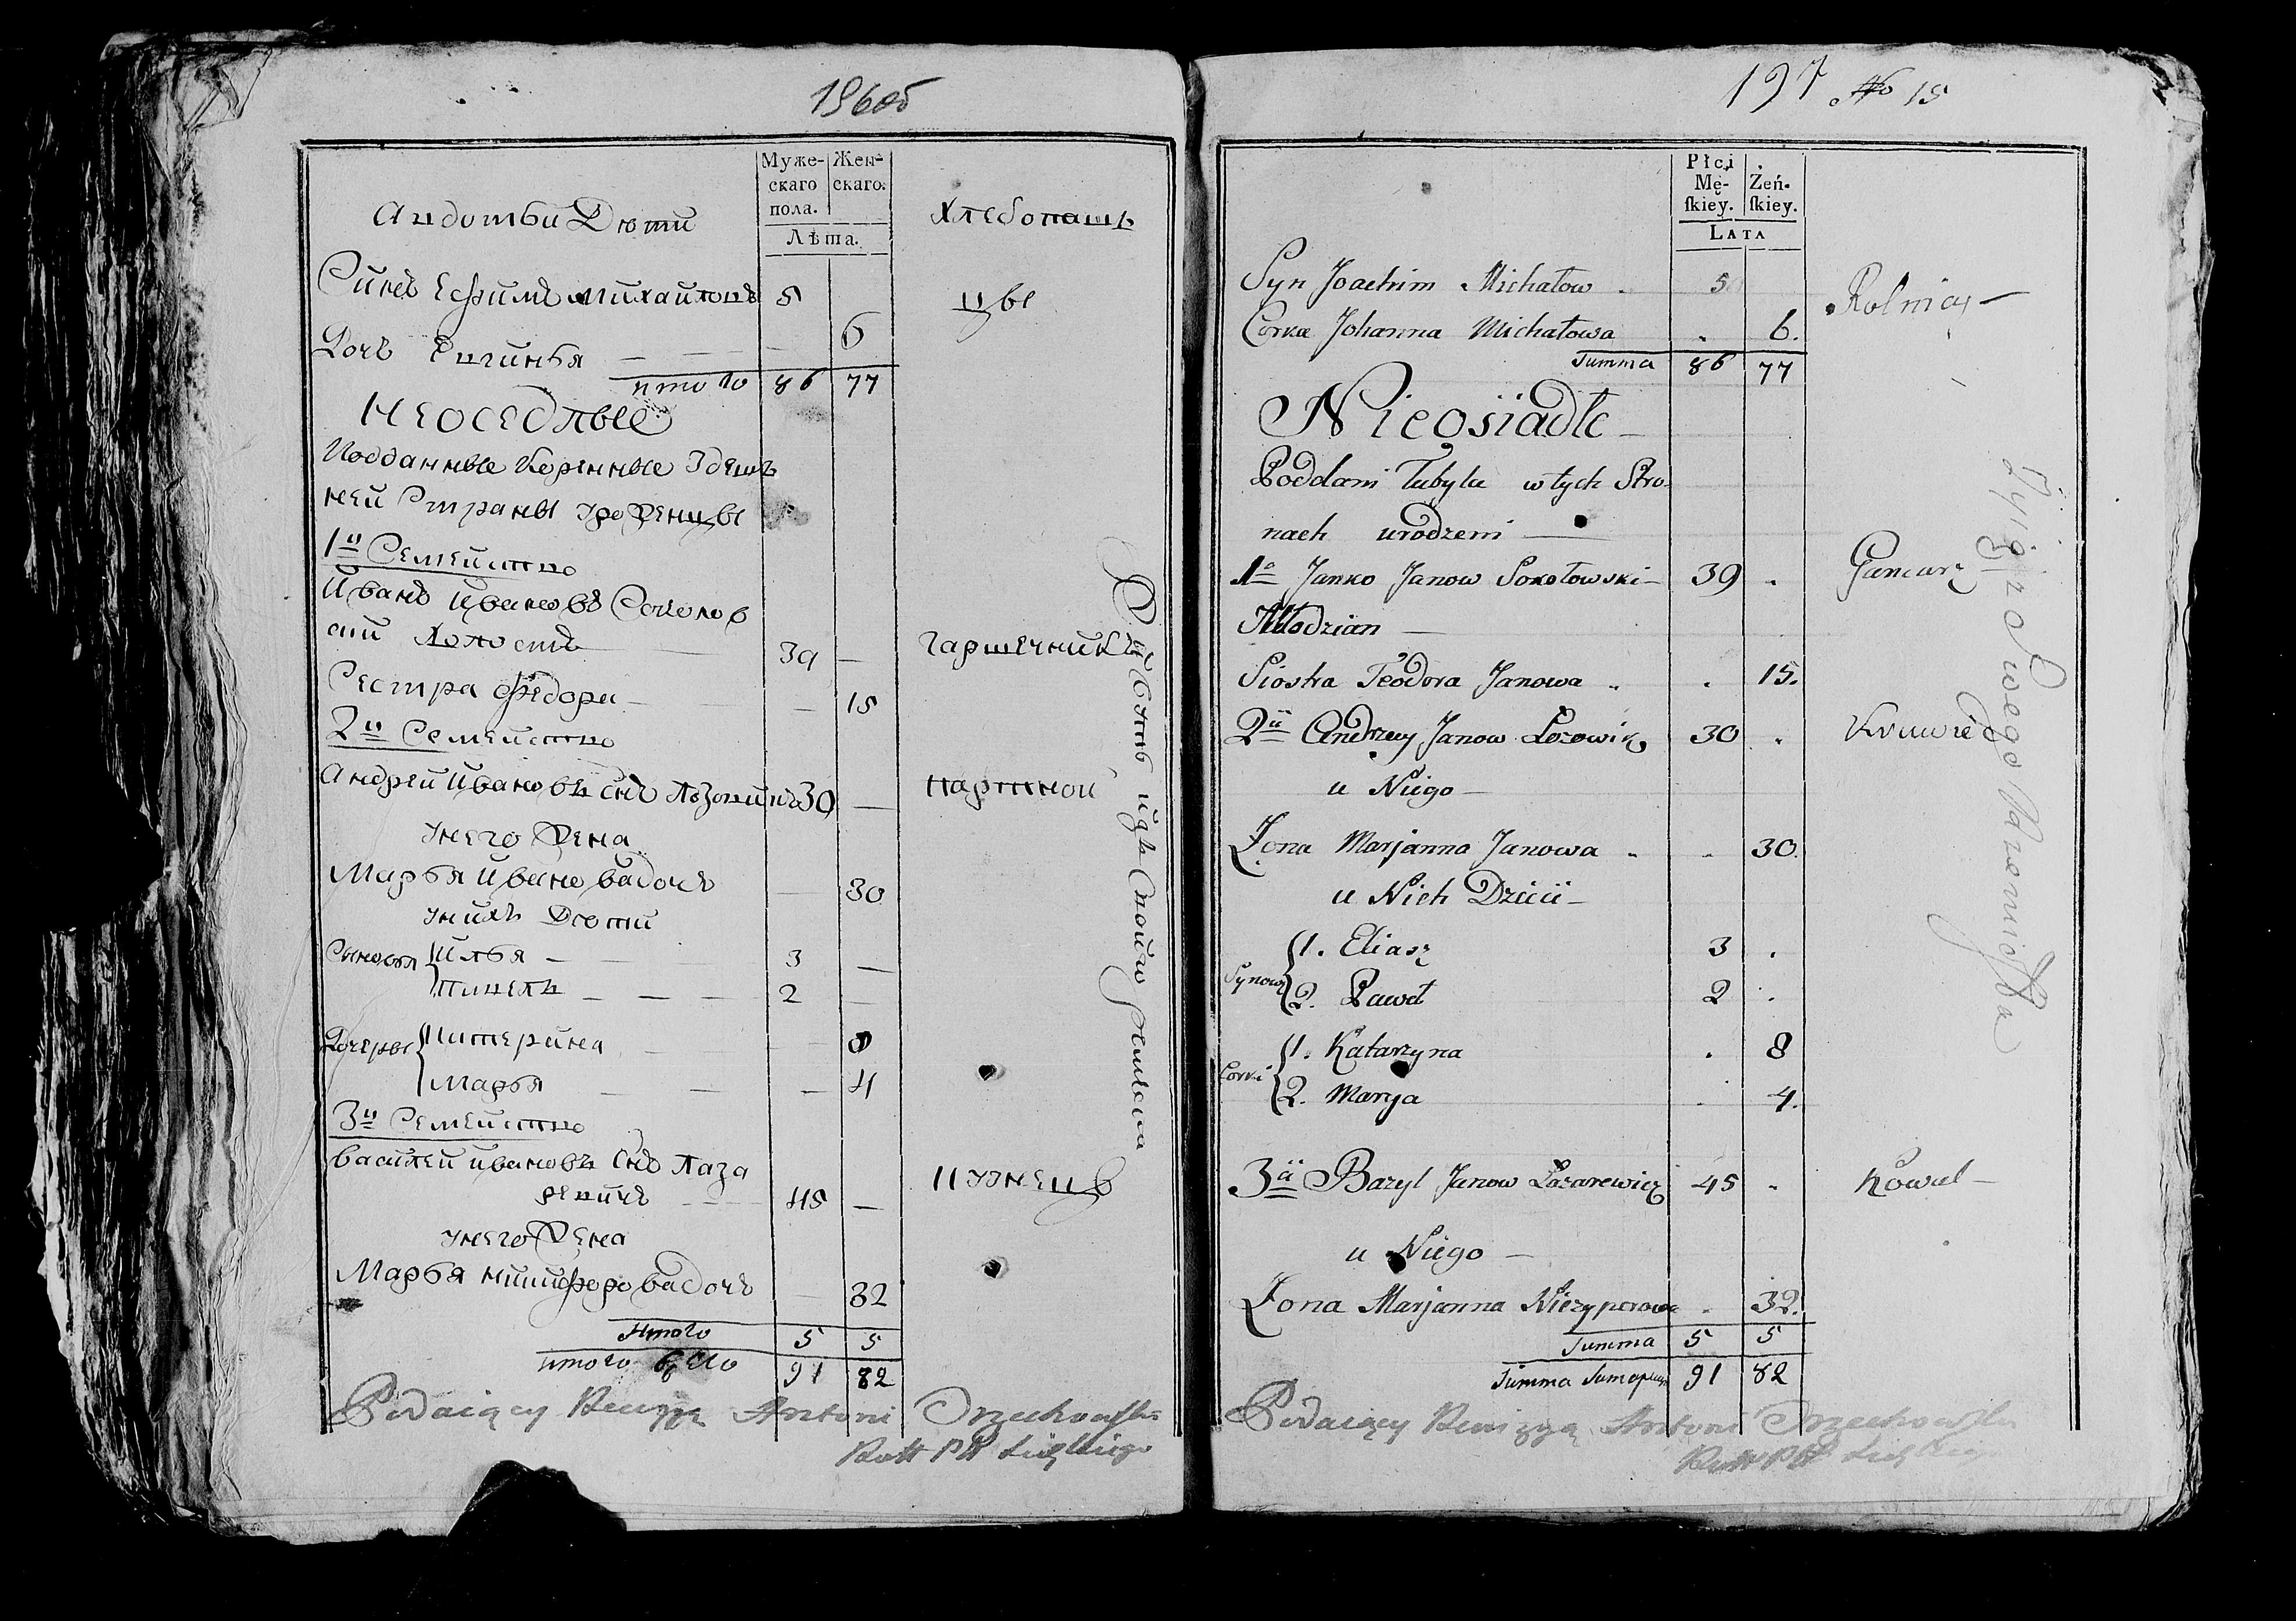 196об
Муже-
скаго
пола.
Жен-
скаго.
Лѣта.
Дѣти
Хлебопаш
цы
Синъ Ефимъ Михаиловъ 5
Дочь 6
итого 86 77
Неоседлые
Подданные Коренные Здеш
ней Страны урожЕнцы
1и Семейство
Иванъ Ивановъ Соколов
ски Холостъ 39 —
гаршечникъ
Сестра Федора — 15
2и Семейство
Андрей Ивановъ снъ Лозовикъ 30 —
партной
унего Жена
Марья Иванова дочь — 30
унихъ Дети
Сыновья Илья — 3 —
Павелъ — 2 —
Дочеры Катерина — 8
Марья — 4
3и Семейство
Василей Ивановъ снъ Лаза
ревичъ 45 —
Кузнецъ
унего Жена
Марья Никифорова дочь — 32
Итого 5 5
итого всего 91 82
Podaiący Rewizyą Antoni Orzechowski
197 No 15
Płci
Mę-
skiey.
Żeń-
skiey.
LATA
Syn Joachim Michałow . 5
Rolnicy —
Corka Johanna Michałowa . 6.
Summa 86 77
Nieosiadłe —
Poddani Tubylce w tych Stro-
nach urodzeni —
1o Janko Janow Sokołowski — 39 .
Gancarz
Młodzian —
Siostra Teodora Janowa . . 15.
2ii Andrzey Janow Łozowik 30 .
Krawiec
u Niego —
Żona Marjanna Janowa . . 30.
u Nich Dzieci —
Synowie 1. Eliasz 3 .
2. Paweł 2 .
Corki 1. Katarzyna . 8
2. Marya . 4.
3ii Bazyl Janow Łazarewicz 45 .
Kowal —
u Niego —
Żona Marjanna Niczyporowa . 32.
Summa 5 5
Summa 91 82
Żyią z Swego Rzemiosła
Podaiący Rewizyą Antoni Orzechowski